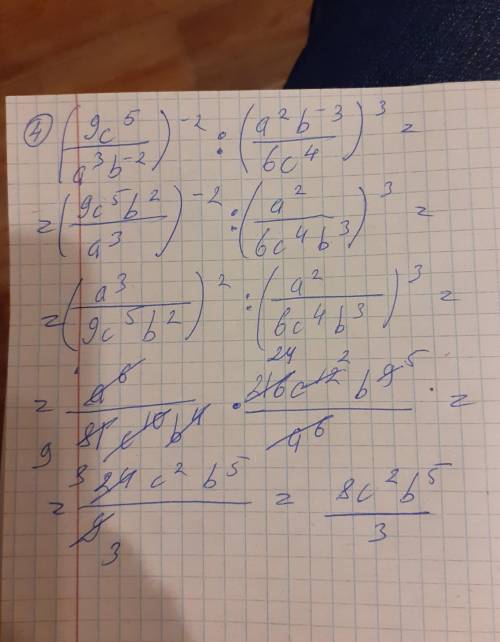 ④ (9c⁵/a³b⁻²)⁻² : (a²b⁻³/6c⁴)³ =
= (9c⁵b²/a³)⁻² : (a²/6c⁴b³)³ =
= (a³/9c⁵b²)² : (a²/6c⁴b³)³ =
24 2 5
= a⁶/81c¹⁰b⁴ · 216c¹²b⁹/a⁶ =
9
= 24c²b⁵/9 = 8c²b⁵/3
3